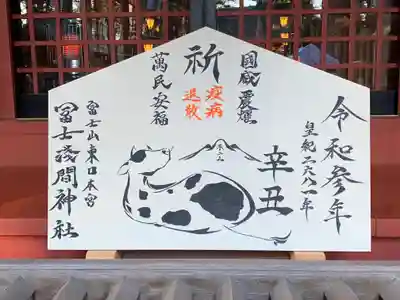 令和参年
皇紀二六八一年
辛丑
国威震燿
祈
疫病
退散
萬民安福
冨士山東口本宮
冨士浅間神社